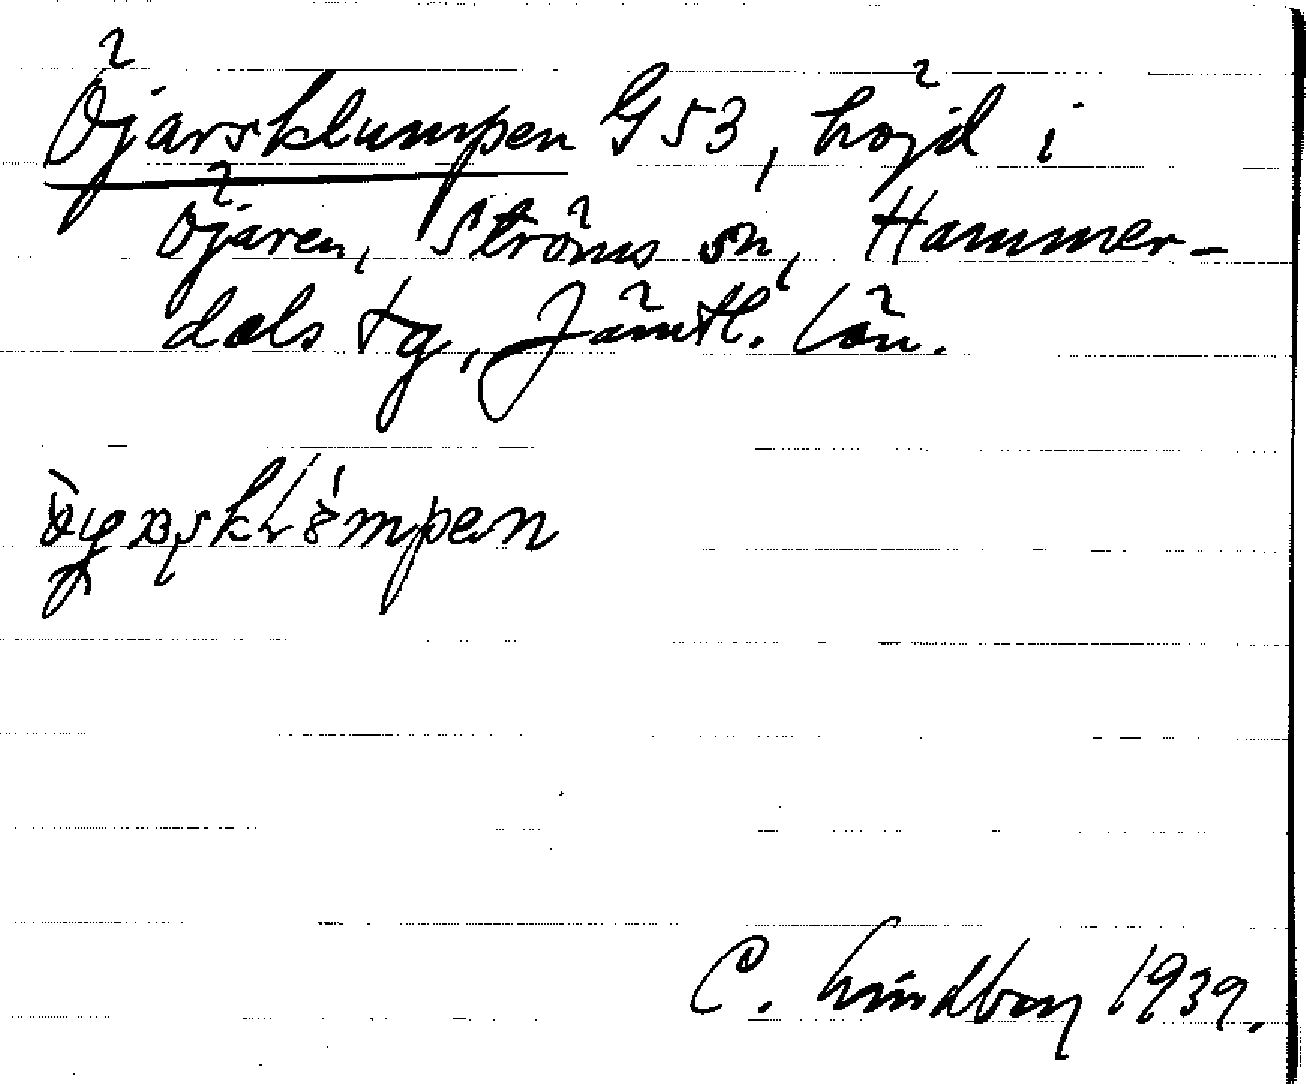 Öjarsklumpen G 53, höjd i
Öjaren, Ströms sn, Hammer-
dals tg, Jämtl. län.
C. Lindberg 1939.